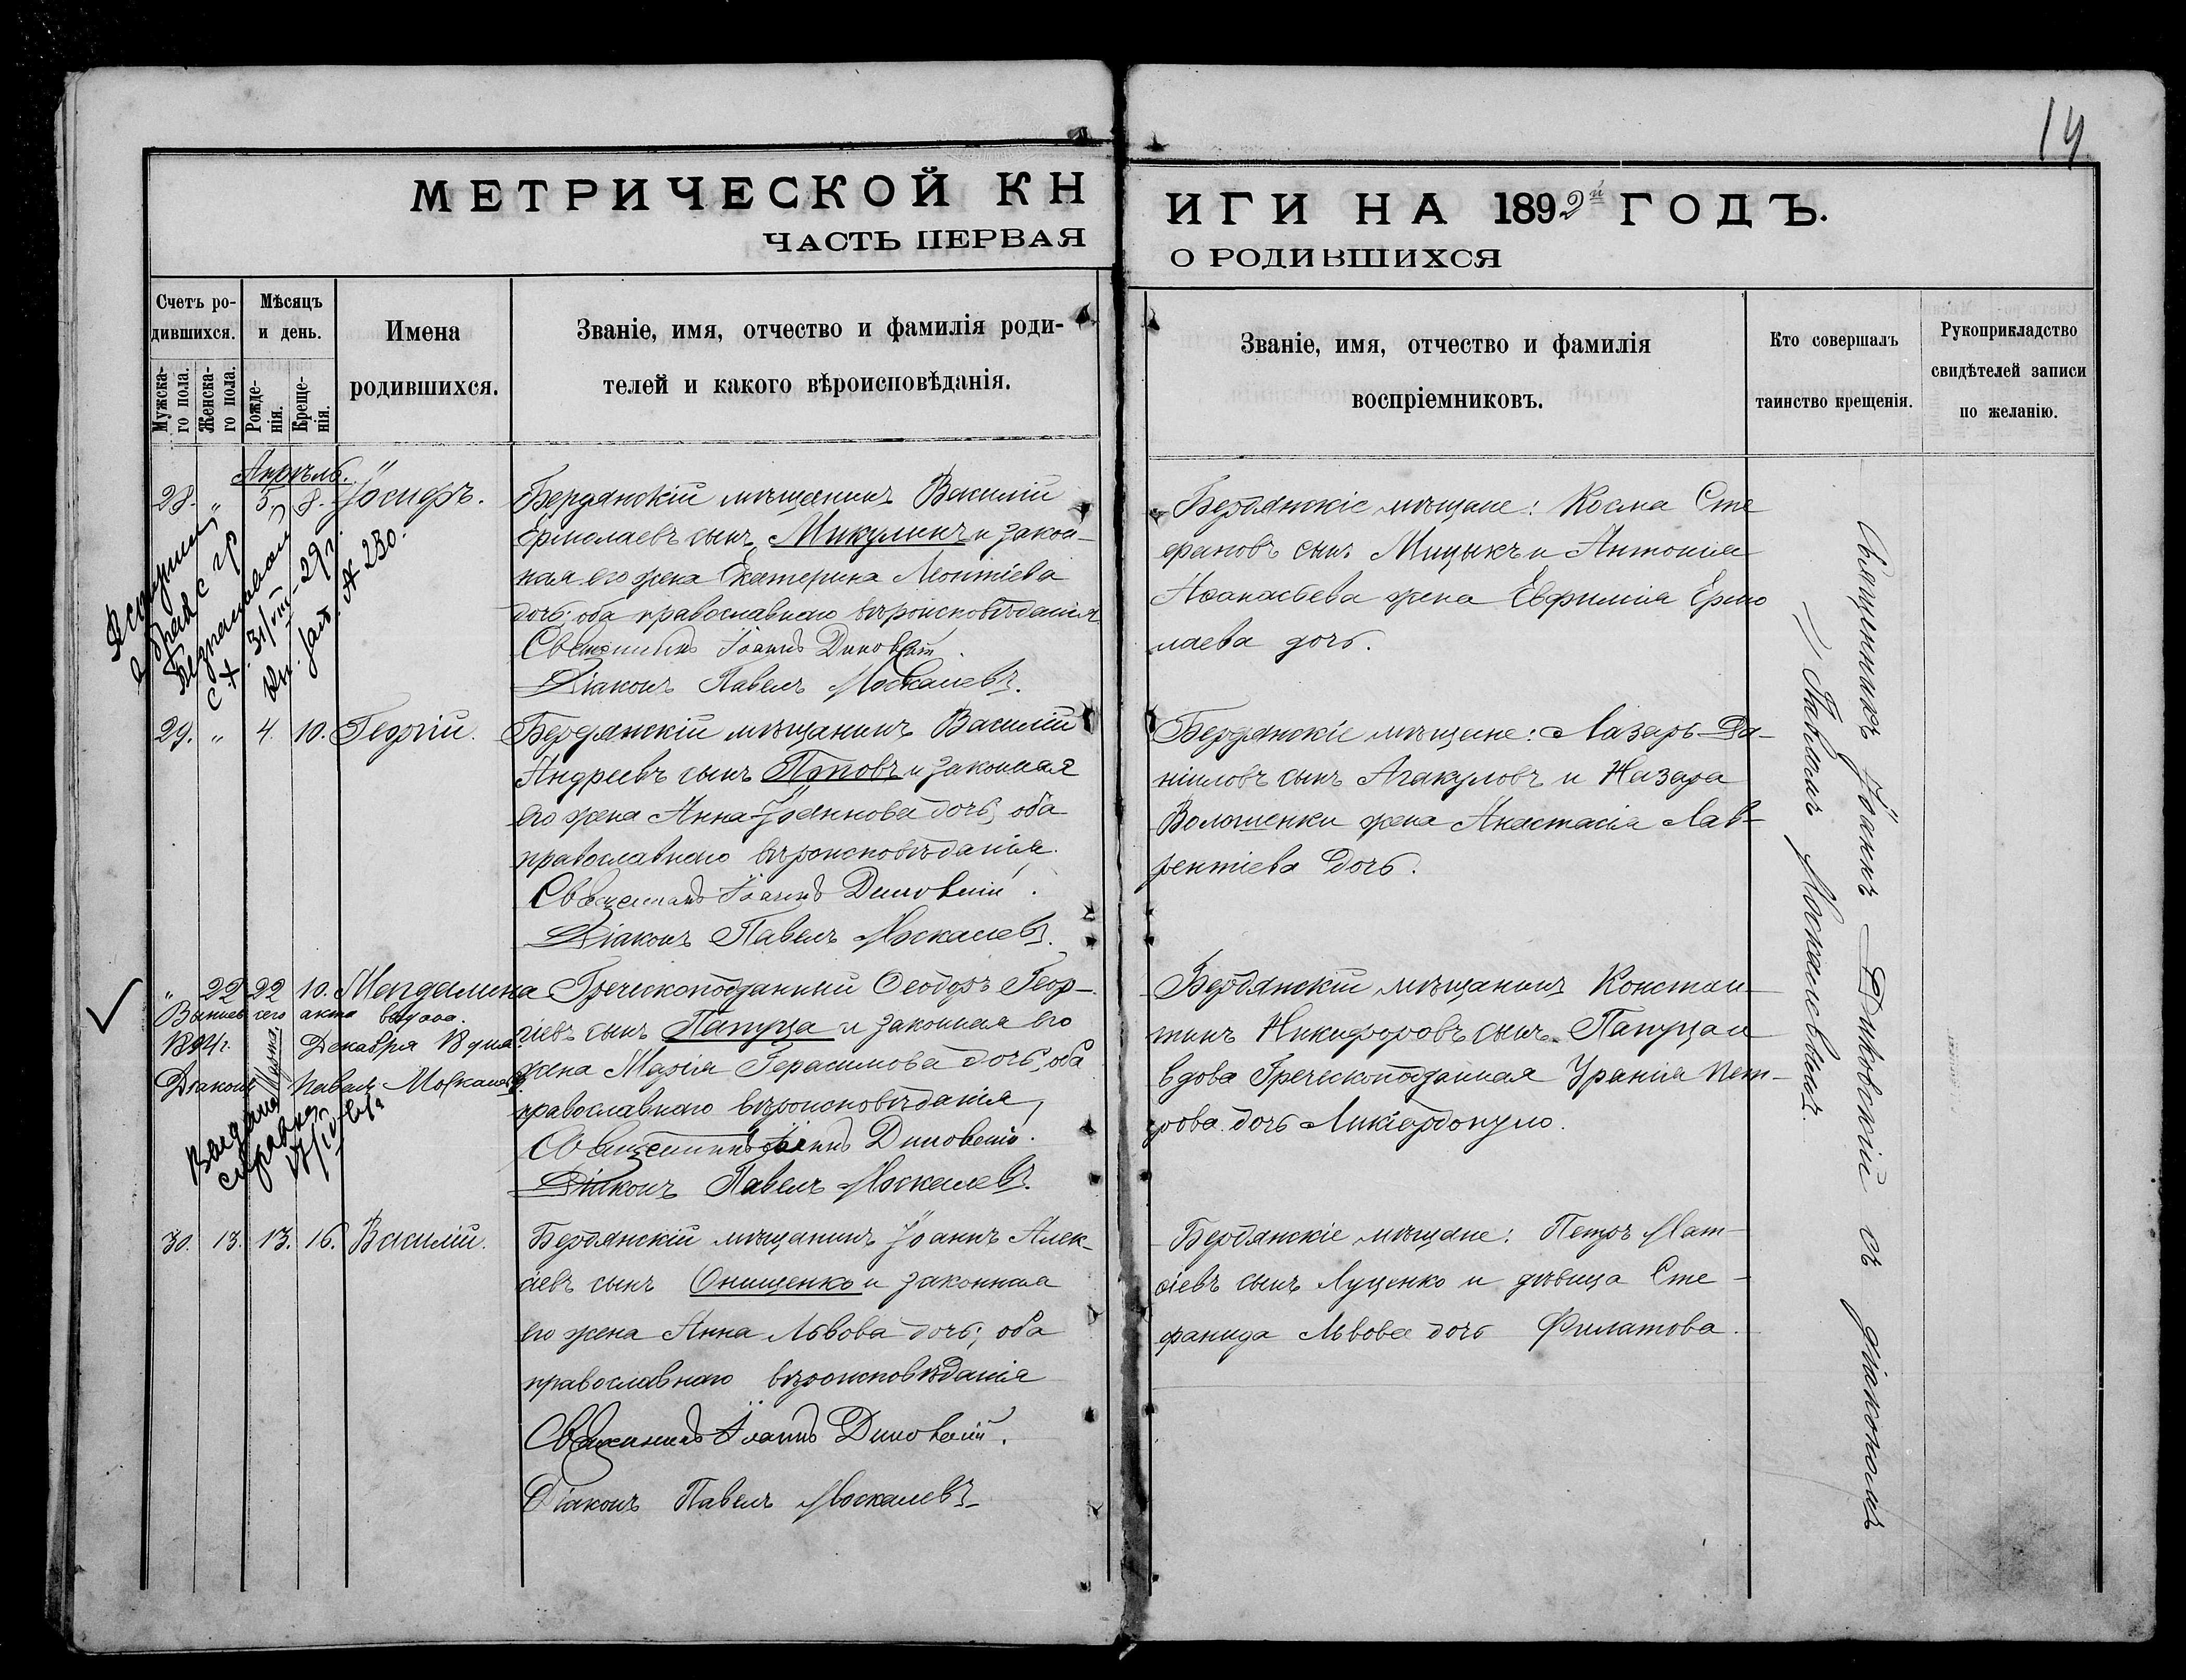 14
МЕТРИЧЕСКОЙ КНИГИ НА 1892й ГОДЪ.
ЧАСТЬ ПЕРВАЯ О РОДИВШИХСЯ
Счетъ ро-
дившихся.
Мужска-
го пола.
Женска-
го пола.
Мѣсяцъ
и день.
Рожде-
нія.
Креще-
нія.
Имена
родившихся.
Званіе, имя, отчество и фамилія роди-
телей и какого вѣроисповѣданія.
Званіе, имя, отчество и фамилія
воспріемниковъ.
Кто совершалъ
таинство крещенія.
Рукоприкладство
свидѣтелей записи
по желанію.
Апрѣль.
28. " 5. 8. Іосифъ.
Бердянскій мѣщанинъ Василій
Ермолаевъ сынъ Микулинъ и закон-
ная его жена Екатерина Леонтіева
дочь; оба православнаго вѣроисповѣданія
Священникъ Іоаннъ Диковскій.
Діаконъ Павелъ Москалевъ.
Бердянскіе мѣщане: Косма Сте
фановъ сынъ Мицыкъ и Антонія
Аѳанасьева жена Евфимія Ермо
лаева дочь.
31/VIII-29 г.
№ 230.
29. " 4. 10. Георгій.
Бердянскій мѣщанинъ Василій
Андреевъ сынъ Пятовъ и законная
его жена Анна Іоаннова дочь; оба
православнаго вѣроисповѣданія.
Священникъ Іоаннъ Диковскій.
Діаконъ Павелъ Москалевъ.
Бердянскіе мѣщане: Лазарь Да-
ніиловъ сынъ Агакуловъ и Назара
Волошенки жена Анастасія Лав-
рентіева дочь.
" 22 22 10. Магдалина
Выпись сего акта выдана.
1894 г. Декабря 18 дня.
Діаконъ Павелъ Москалевъ
Выдана
справка
Греческоподданный Ѳеодоръ Геор-
гіевъ сынъ Папуца и законная его
жена Марія Герасимова дочь; оба
православнаго вѣроисповѣданія,
Священникъ Іоаннъ Диковскій.
Діаконъ Павелъ Москалевъ.
Бердянскій мѣщанинъ Констан-
тинъ Никифоровъ сынъ Папуца и
вдова Греческоподданная Уранія Пет-
рова дочь Ликіардопуло.
30. 13. 13. 16. Василій.
Бердянскій мѣщанинъ Іоаннъ Алек-
сіевъ сынъ Онищенко и законная
его жена Анна Львова дочь; оба
православнаго вѣроисповѣданія
Священникъ Іоаннъ Диковскій.
Діаконъ Павелъ Москалевъ
Бердянскіе мѣщане: Петръ Мат-
ѳіевъ сынъ Луценко и дѣвица Сте-
фанида Львова дочь Филатова.
Священникъ Іоаннъ Диковскій съ діакономъ
Павломъ Москалевымъ.